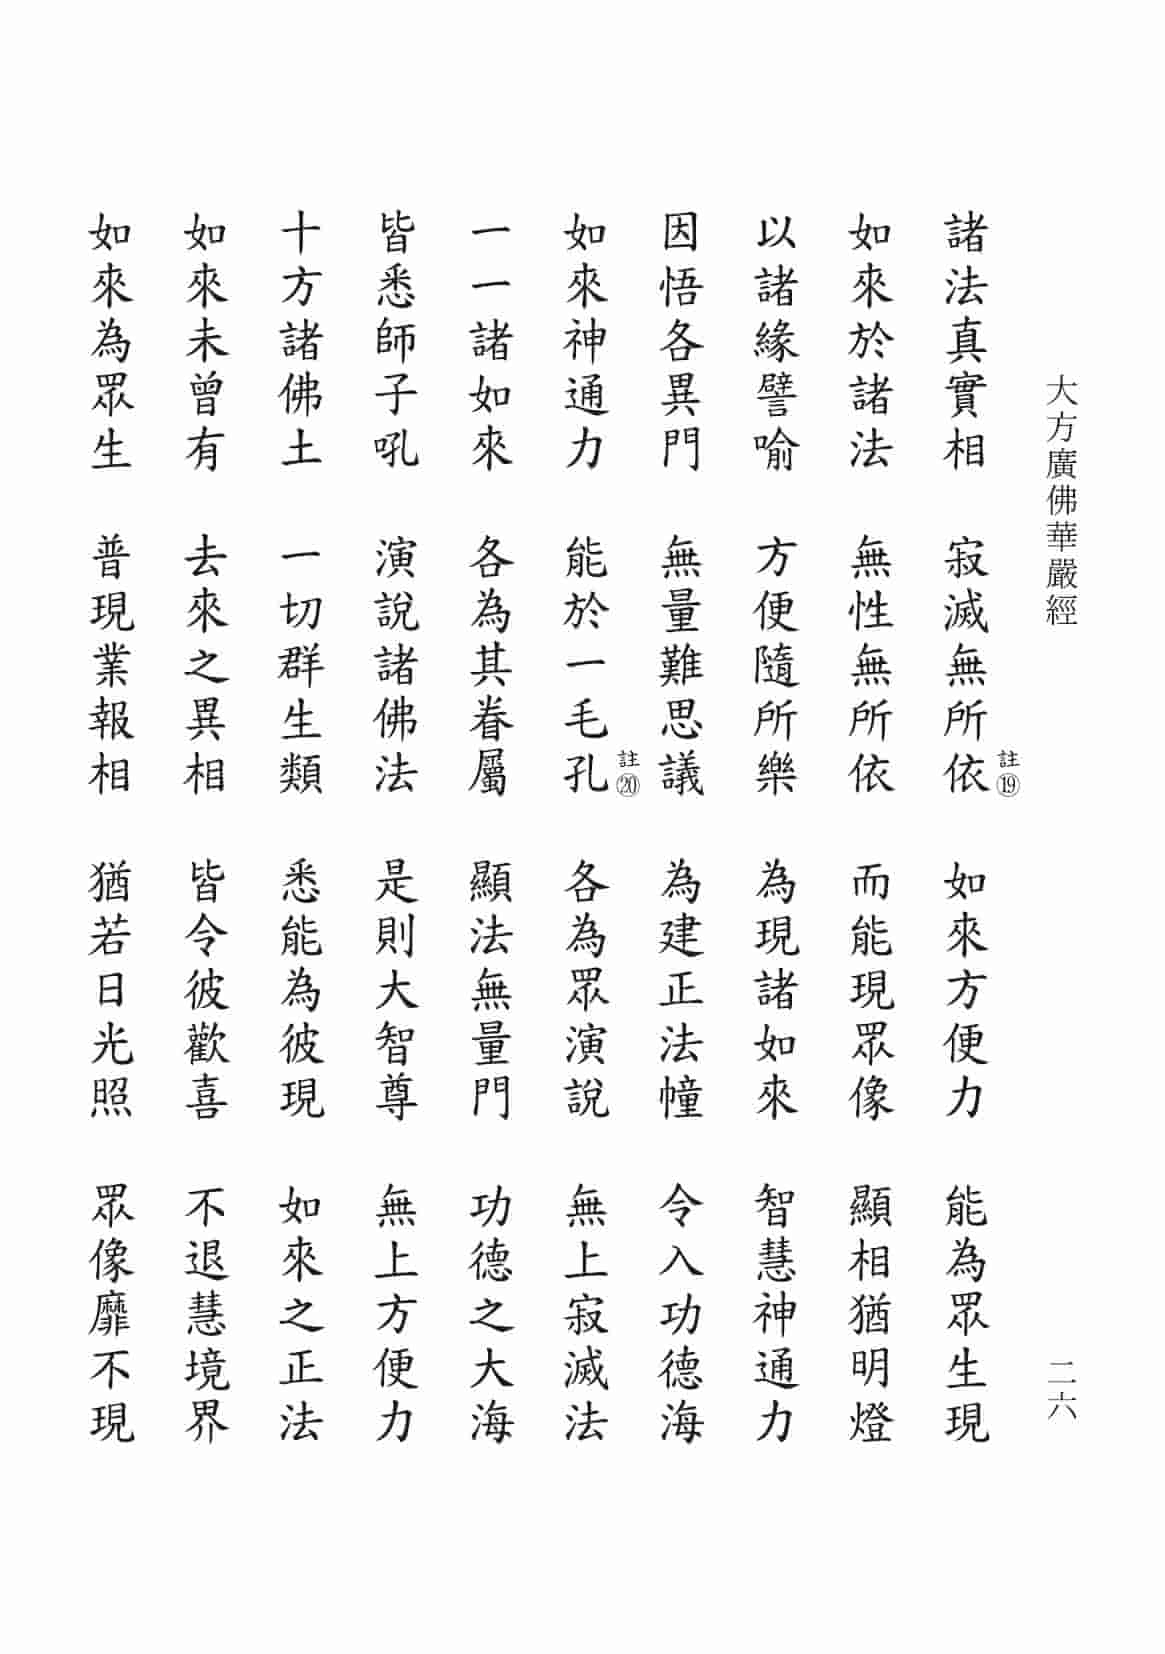 大方廣佛華嚴經
二六
諸法真實相　寂滅無所依　如來方便力　能為眾生現
註⑲
如來於諸法　無性無所依　而能現眾像　顯相猶明燈
以諸緣譬喻　方便隨所樂　為現諸如來　智慧神通力
因悟各異門　無量難思議　為建正法幢　令入功德海
如來神通力　能於一毛孔　各為眾演說　無上寂滅法
註⑳
一一諸如來　各為其眷屬　顯法無量門　功德之大海
皆悉師子吼　演說諸佛法　是則大智尊　無上方便力
十方諸佛土　一切群生類　悉能為彼現　如來之正法
如來未曾有　去來之異相　皆令彼歡喜　不退慧境界
如來為眾生　普現業報相　猶若日光照　眾像靡不現